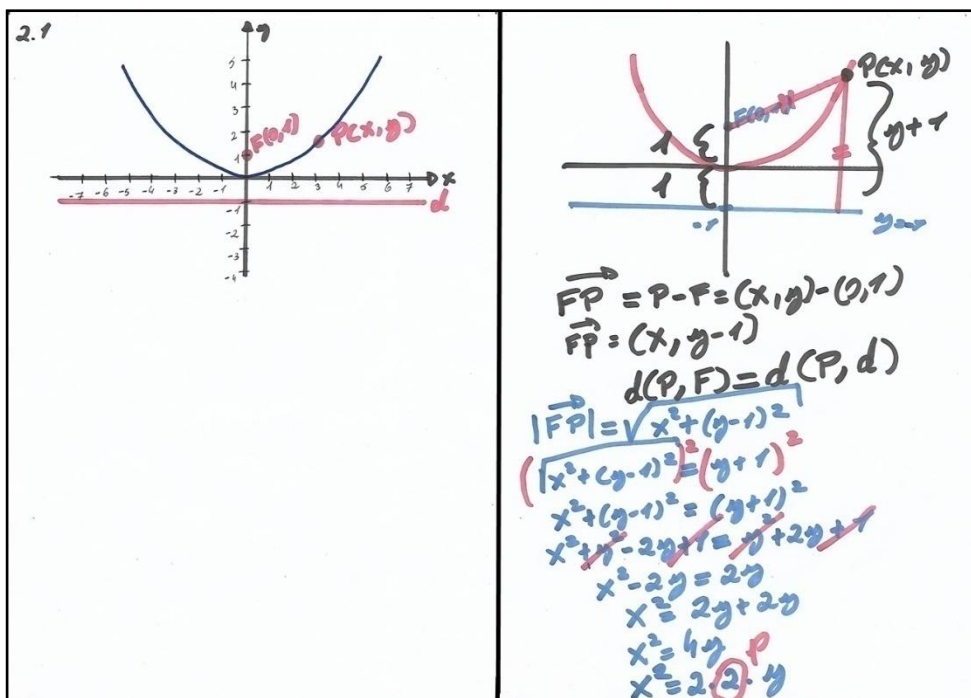 2.1
y
5
4
3
2
1
F(0,1)
P(x,y)
-7 -6 -5 -4 -3 -2 -1 1 2 3 4 5 6 7 x
d
-1
-2
-3
-4
P(x,y)
F(0,1)
1
y+1
1
-1
y=-1
FP = P-F = (x,y)-(0,1)
FP = (x, y-1)
d(P,F) = d(P,d)
|FP| = √x²+(y-1)²
(√x²+(y-1)²)² = (y+1)²
x²+(y-1)² = (y+1)²
x²+y²-2y+1 = y²+2y+1
x²-2y = 2y
x² = 2y+2y
x² = 4y
P
x² = 2·2·y